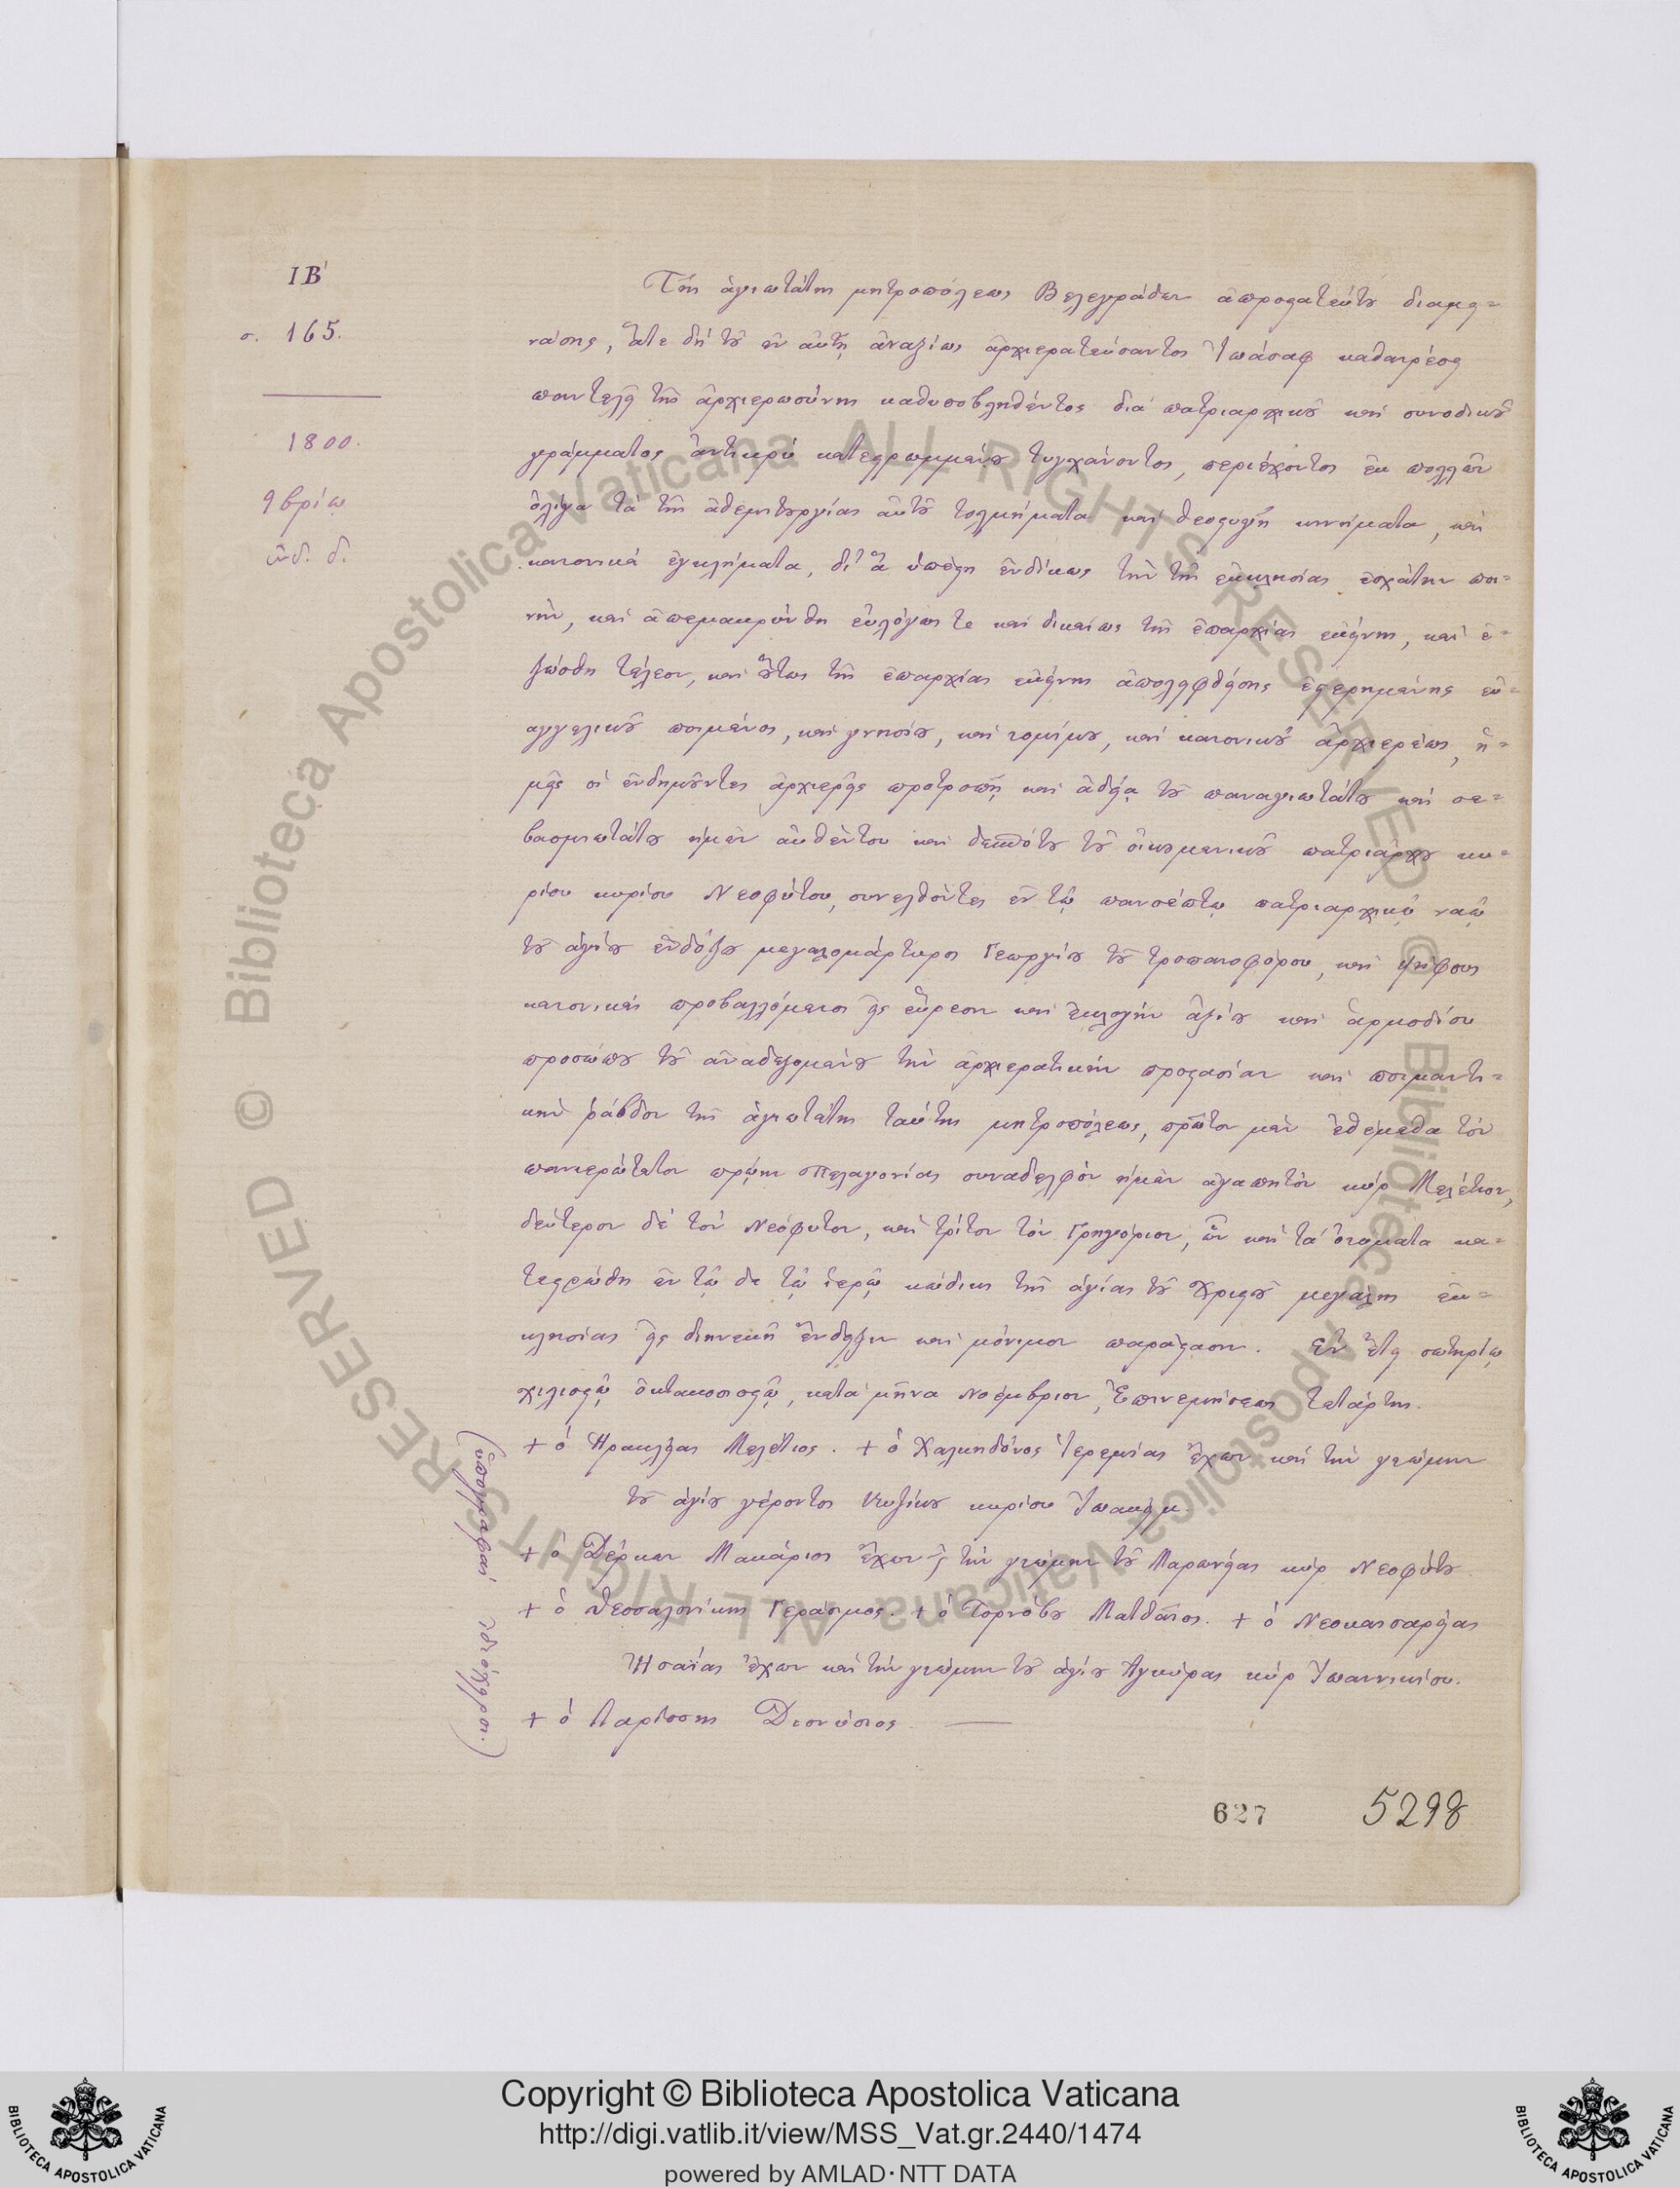 ΙΒ΄
σ. 165.
1800.
9βρίῳ
ἰνδ. δ.
Τῆς ἁγιωτάτης μητροπόλεως Βελεγράδων ἀπροστατεύτου διαμει=
νάσης, ἅτε δὴ τοῦ ἐν αὐτῇ ἀναξίως ἀρχιερατεύσαντος Ἰωάσαφ καθαιρέσει
παντελεῖ τῆς ἀρχιερωσύνης καθυποβληθέντος διὰ πατριαρχικοῦ καὶ συνοδικοῦ
γράμματος ἀντικρὺ κατεστρωμμένου τυγχάνοντος, περιέχοντος ἐκ πολλῶν
ὀλίγα τὰ τῆς ἀθεμιτουργίας αὐτοῦ τολμήματα καὶ θεοστυγῆ κινήματα, καὶ
κανονικὰ ἐγκλήματα, δι' ἃ ὑπέστη ἐνδίκως τὴν τῆς ἐκκλησίας ἐσχάτην ποι=
νὴν, καὶ ἀπεμακρύνθη εὐλόγως τε καὶ δικαίως τῆς ἐπαρχίας ἐκείνης, καὶ ἐ=
ξώσθη τέλεον, καὶ οὕτως τῆς ἐπαρχίας ἐκείνης ἀπολειφθείσης ἐστερημένης εὐ=
αγγελικοῦ ποιμένος, καὶ γνησίου, καὶ νομίμου, καὶ κανονικοῦ ἀρχιερέως, ἡ=
μεῖς οἱ ἐνδημοῦντες ἀρχιερεῖς προτροπῇ καὶ ἀδείᾳ τοῦ παναγιωτάτου καὶ σε=
βασμιωτάτου ἡμῶν αὐθέντου καὶ δεσπότου τοῦ οἰκουμενικοῦ πατριάρχου κυ=
ρίου κυρίου Νεοφύτου, συνελθόντες ἐν τῷ πανσέπτῳ πατριαρχικῷ ναῷ
τοῦ ἁγίου ἐνδόξου μεγαλομάρτυρος Γεωργίου τοῦ τροπαιοφόρου, καὶ ψήφους
κανονικὰς προβαλλόμενοι εἰς εὕρεσιν καὶ ἐκλογὴν ἀξίου καὶ ἁρμοδίου
προσώπου τοῦ ἀναδεξομένου τὴν ἀρχιερατικὴν προστασίαν καὶ ποιμαντι=
κὴν ῥάβδον τῆς ἁγιωτάτης ταύτης μητροπόλεως, πρῶτον μὲν ἐθέμεθα τὸν
πανιερώτατον πρώην Πελαγονίας συναδελφὸν ἡμῶν ἀγαπητὸν κὺρ Μελέτιον,
δεύτερον δὲ τὸν Νεόφυτον, καὶ τρίτον τὸν Γρηγόριον, ὧν καὶ τὰ ὀνόματα κα=
τεστρώθη ἐν τῷδε τῷ ἱερῷ κώδικι τῆς ἁγίας τοῦ Χριστοῦ μεγάλης ἐκ=
κλησίας εἰς διηνεκῆ ἔνδειξιν καὶ μόνιμον παράστασιν. Ἐν ἔτει σωτηρίῳ
χιλιοστῷ ὀκτακοσιοστῷ, κατὰ μῆνα Νοέμβριον, Ἐπινεμήσεως τετάρτης.
+ ὁ Ἡρακλείας Μελέτιος. + ὁ Χαλκηδόνος Ἱερεμίας ἔχων καὶ τὴν γνώμην
τοῦ ἁγίου γέροντος Κυζίκου κυρίου Ἰωακείμ.
+ ὁ Δέρκων Μακάριος ἔχων κ τὴν γνώμην τοῦ Μαρωνείας κὺρ Νεοφύτου
+ ὁ Θεσσαλονίκης Γεράσιμος. + ὁ Τορνόβου Ματθαῖος. + ὁ Νεοκαισαρείας
Ἡσαΐας ἔχων καὶ τὴν γνώμην τοῦ ἁγίου Ἀγκύρας κὺρ Ἰωαννικίου.
+ ὁ Λαρίσσης Διονύσιος.
(ὑπογραφαὶ ἰδιόχειροι.)
627
5298
© Biblioteca Apostolica Vaticana ALL RIGHTS RESERVED © Biblioteca Apostolica Vaticana ALL RIGHTS RESERVED
Copyright © Biblioteca Apostolica Vaticana
http://digi.vatlib.it/view/MSS_Vat.gr.2440/1474
powered by AMLAD·NTT DATA
BIBLIOTECA APOSTOLICA VATICANA
BIBLIOTECA APOSTOLICA VATICANA